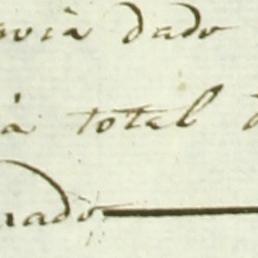 avia dado
a total
nado